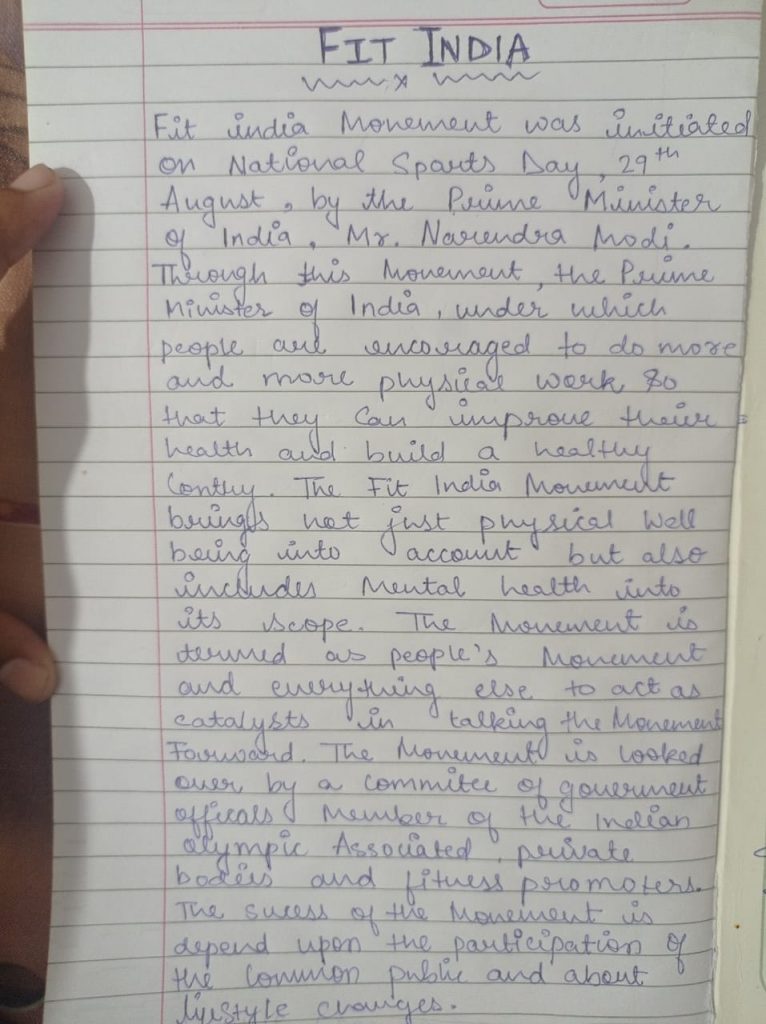 FIT INDIA
Fit india Monement was initiated
on National Sports Day, 29th
August, by the Prime Minister
of India, Mr. Narendra Modi.
Through this Monement, the Prime
Minister of India, under which
people are encouraged to do more
and more physical work so
that they Can improve their
health and build a healthy
Contry. The Fit India Monement
brings not just physical Well
being into account but also
includes Mental health into
its scope. The Monement is
termed as people's Monement
and everything else to act as
catalysts in talking the Monement
Forward. The Monement is looked
over by a Commitee of government
officals Member of the Indian
olympic Associated, private
bodies and fitness promoters.
The sucess of the Monement is
depend upon the participation of
the Common public and about
lifestyle changes.